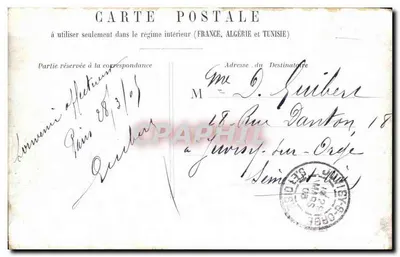 CARTE POSTALE
à utiliser seulement dans le régime intérieur (FRANCE, ALGÉRIE et TUNISIE)
Partie réservée à la correspondance
Adresse du Destinataire
Souvenir affectueux
Paris 28/3/05
Guibert
M me D. Guibert
18 Rue Danton, 18
à Juvisy-sur-Orge
Seine et Oise
CPARAMA.COM
JUVISY-S-ORGE
MARS
S.-ET-OISE